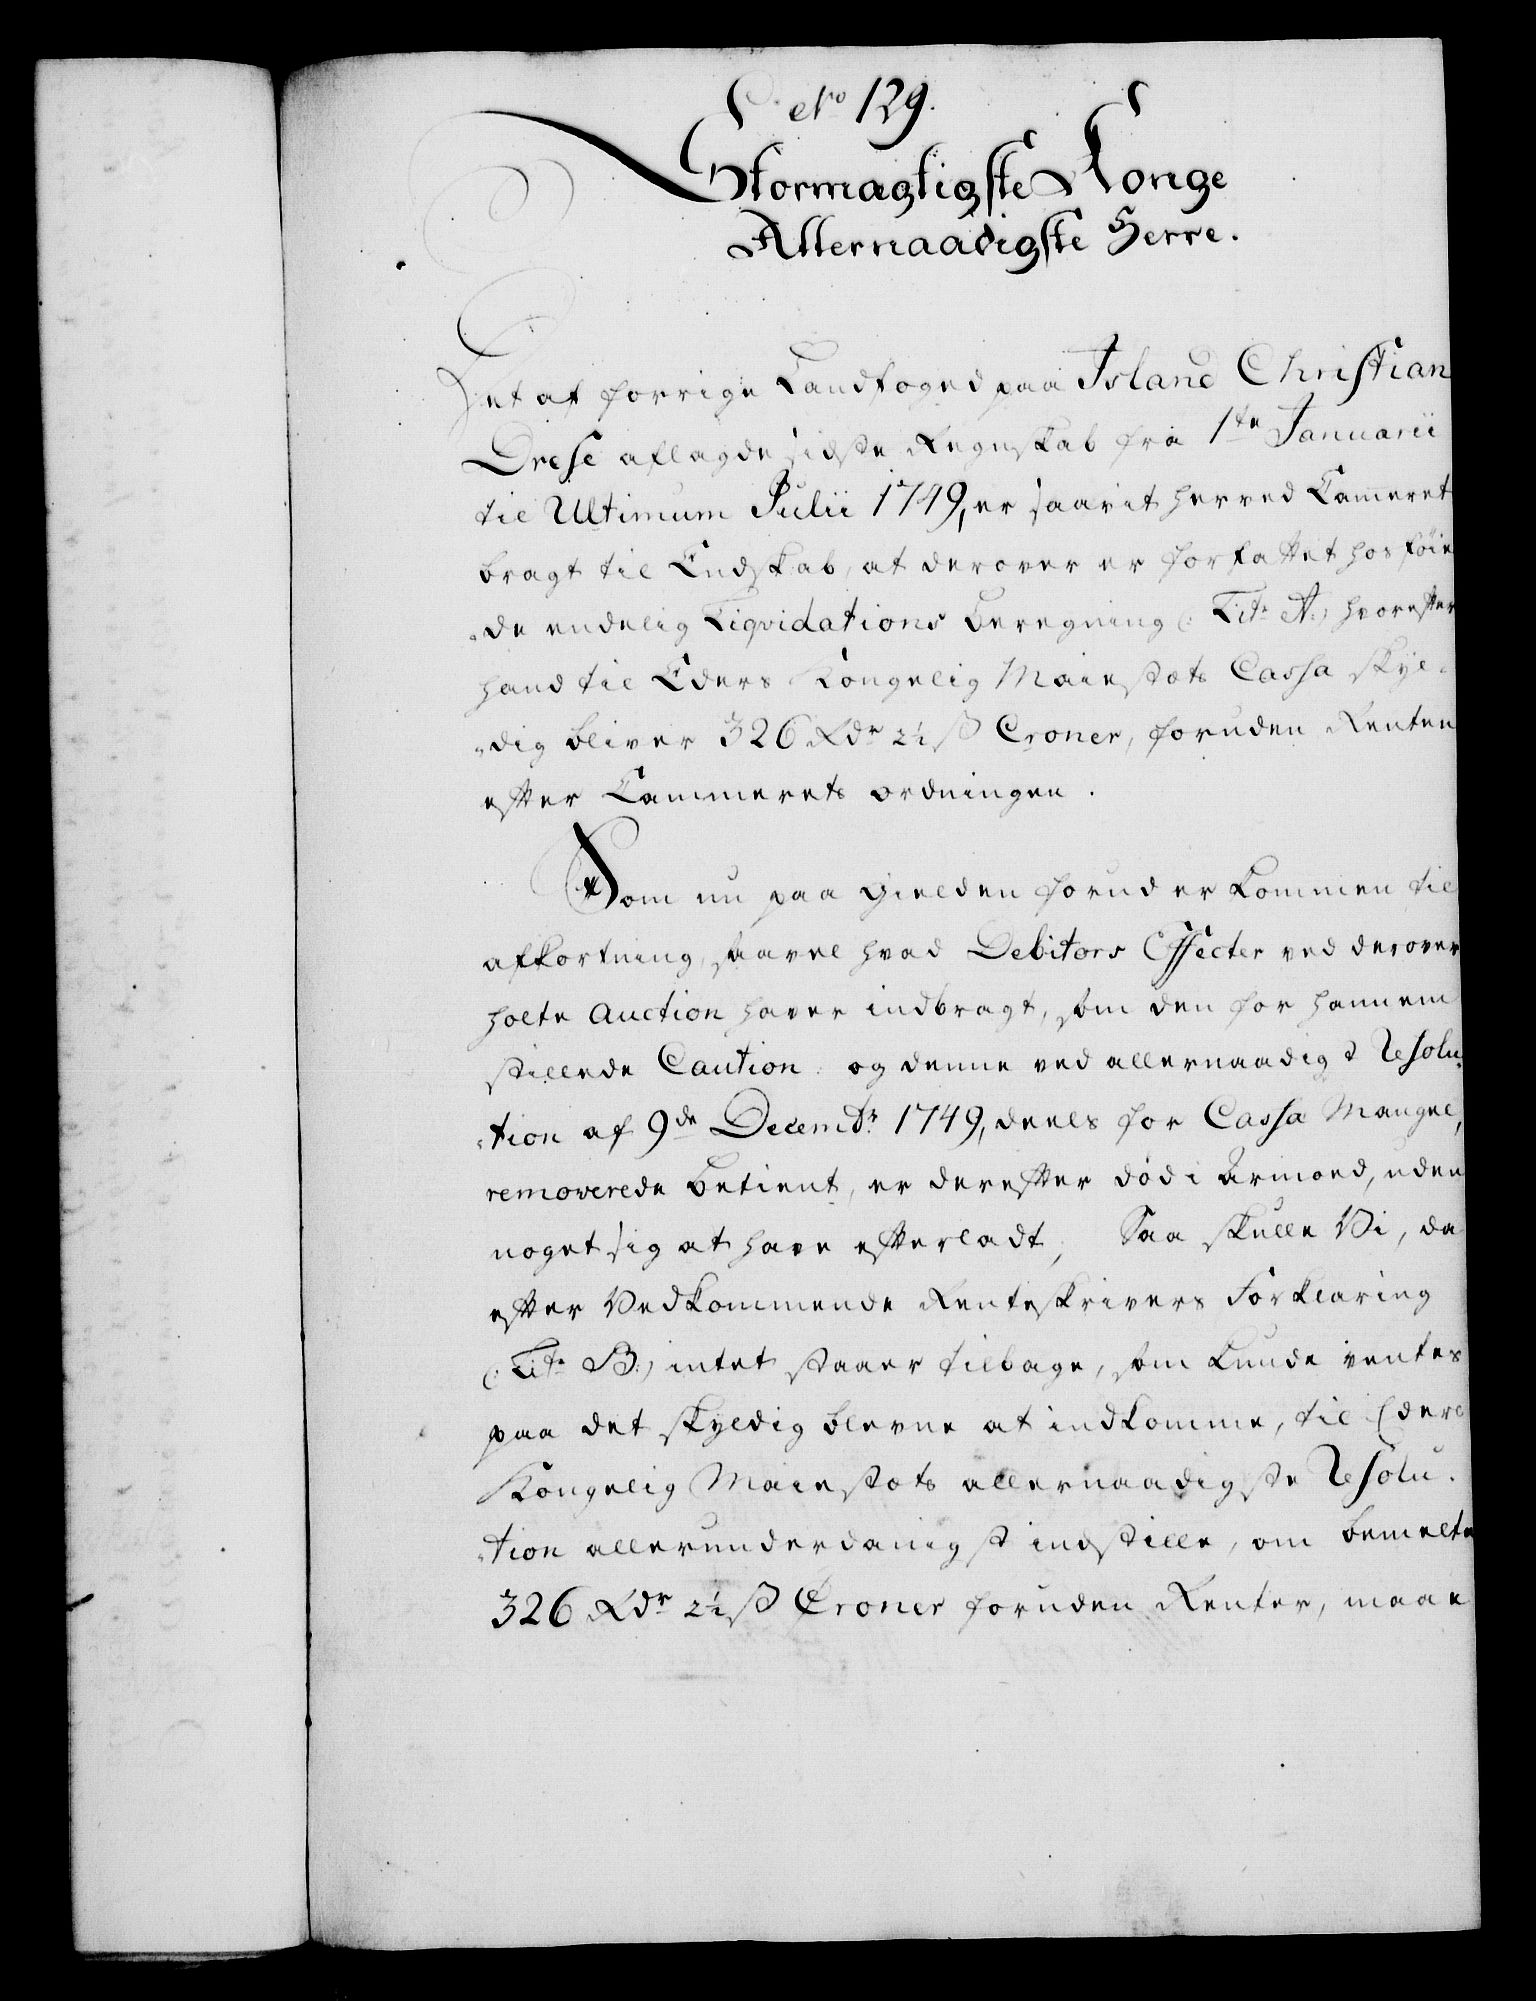 No 129.
Stormægtigste Konge
Allernaadigste Herre.
Det af forrige Landfoged paa Island Christian
Drese aflagde sidste Regnskab fra 1te Januarii
til Ultimum Julii 1749, er saavit herved Cammeret
bragt til Endskab, at derover er forfattet hosføien
de endelig Liqvidations Beregning (: Lit: A:) hvorefter
hand til Eders Kongelig Maiestæts Cassa skyl-
dig bliver 326 Rdr 2½ ß Croner, foruden Renten
efter Cammerets ordningen.
Som nu paa Gielden forud er kommen til
afkortning, saavel hvad Debitors Effecter ved derover
holte Auction haver indbragt, som den for hannem
stillede Caution og denne ved allernaadigst Resolu-
tion af 9de Decembr: 1749, deels for Cassa Mangel,
removerede betient, er derefter død i Armoed, uden
noget sig at have efterladt; Saa skulle Vi, da
efter Vedkommende Renteskrivers Forklaring
(: Lit: B:) intet staaer tilbage, som kunde ventes
paa det skyldig blevne at indkomme, til Eders
Kongelig Maiestæts allernaadigste Resolu-
tion allerunderdanigst indstille, om bemelte
326 Rdr 2½ ß Croner foruden Renter, maae